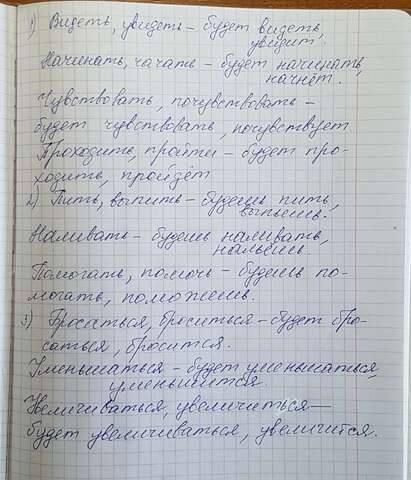 1) Видеть, увидеть – будет видеть,
увидит.
Начинать, начать – будет начинать,
начнёт.
Чувствовать, почувствовать –
будет чувствовать, почувствует
Проходить, пройти – будет про-
ходить, пройдёт
2) Пить, выпить – будешь пить,
выпьешь.
Наливать – будешь наливать,
нальёшь.
Помогать, помочь – будешь по-
могать, поможешь.
3) Бросаться, броситься – будет бро-
саться, бросится.
Уменьшаться – будет уменьшаться,
уменьшится.
Увеличиваться, увеличиться –
будет увеличиваться, увеличится.